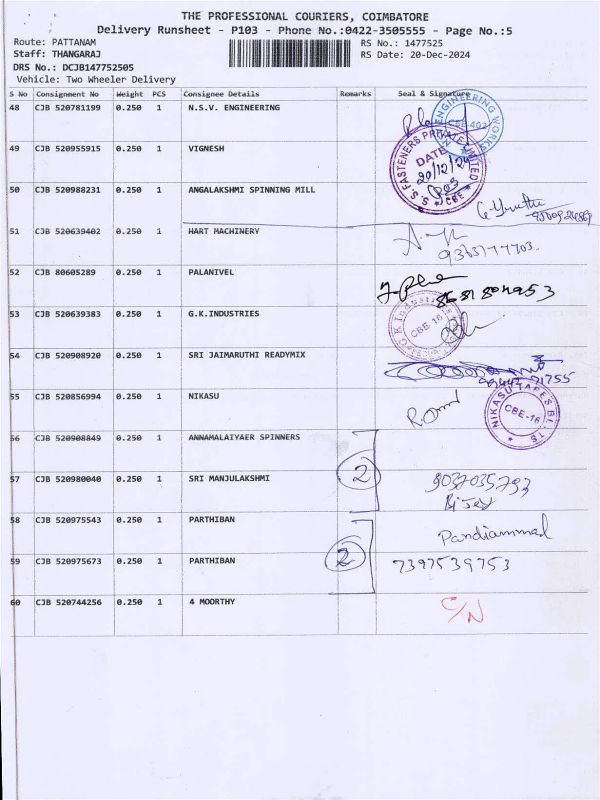 THE PROFESSIONAL COURIERS, COIMBATORE
Delivery Runsheet - P103 - Phone No.:0422-3505555 - Page No.:5
Route: PATTANAM RS No.: 1477525
Staff: THANGARAJ RS Date: 20-Dec-2024
DRS No.: DCJB147752505
Vehicle: Two Wheeler Delivery
S No Consignment No Weight PCS Consignee Details Remarks Seal & Signature
48 CJB 520781199 0.250 1 N.S.V. ENGINEERING
ENGINEERING WORKS
CBE-402
49 CJB 520955915 0.250 1 VIGNESH
S.S. FASTENERS PRIVATE LIMITED
DATE
20/12/24
CBE
50 CJB 520988231 0.250 1 ANGALAKSHMI SPINNING MILL
51 CJB 520639402 0.250 1 HART MACHINERY
52 CJB 80605289 0.250 1 PALANIVEL
53 CJB 520639383 0.250 1 G.K.INDUSTRIES
CBE-16
54 CJB 520908920 0.250 1 SRI JAIMARUTHI READYMIX
55 CJB 520856994 0.250 1 NIKASU
NIKASU TAPES
CBE-16
56 CJB 520908849 0.250 1 ANNAMALAIYAER SPINNERS
57 CJB 520980040 0.250 1 SRI MANJULAKSHMI
2
9037035793
58 CJB 520975543 0.250 1 PARTHIBAN
Pandiammal
59 CJB 520975673 0.250 1 PARTHIBAN
2
7397539753
60 CJB 520744256 0.250 1 4 MOORTHY
C/N